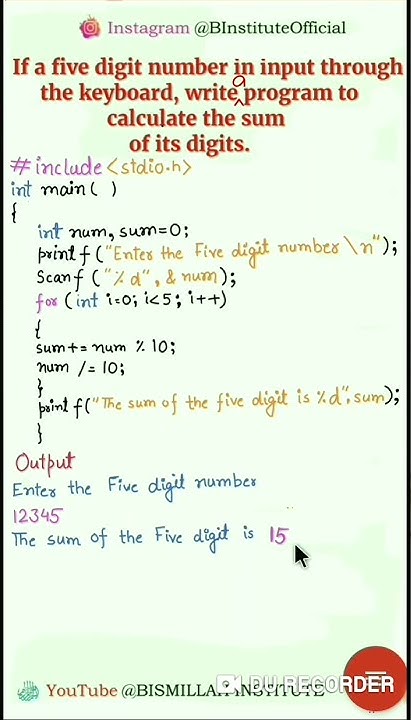 Instagram @BInstituteOfficial
If a five digit number in input through
the keyboard, write a program to
calculate the sum
of its digits.
#include <stdio.h>
int main( )
{
int num, sum=0;
printf("Enter the Five digit number \n");
Scanf ("%d", & num);
for (int i=0; i<5; i++)
{
sum+= num % 10;
num /= 10;
}
printf("The sum of the five digit is %d", sum);
}
Output
Enter the Five digit number
12345
The sum of the Five digit is 15
DU RECORDER
YouTube @BISMILLAH INSTITUTE